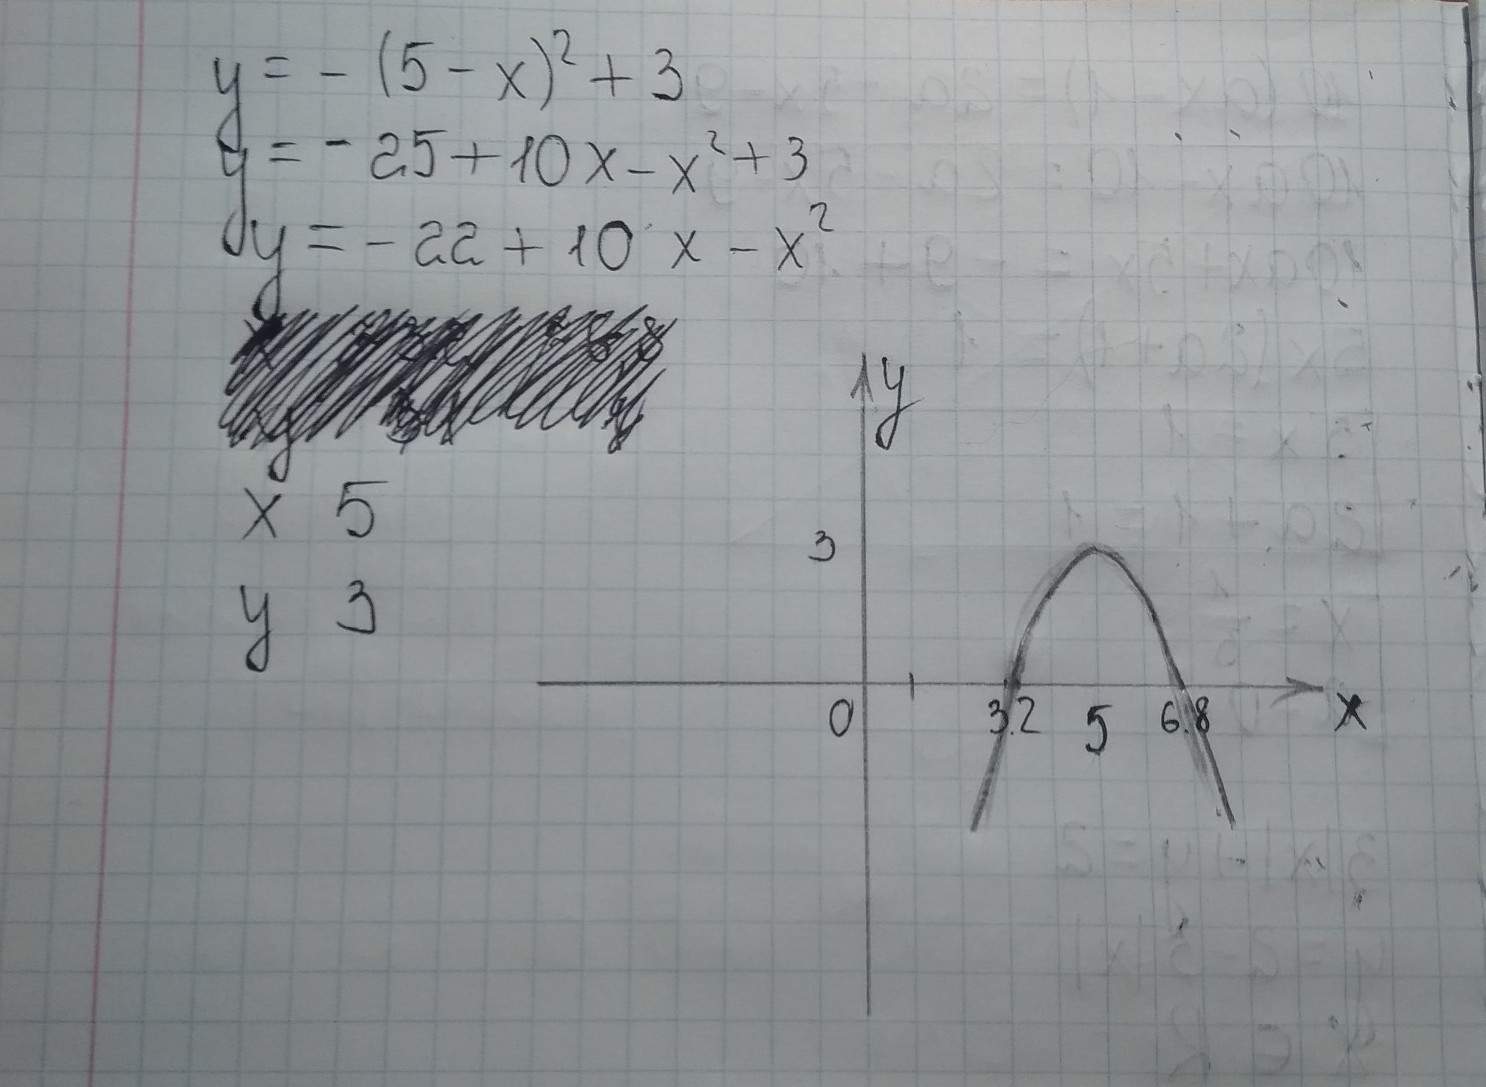 y = - (5 - x)² + 3
y = - 25 + 10x - x² + 3
y = - 22 + 10 x - x²
x 5
y 3
y
3
0 3.2 5 6.8 x